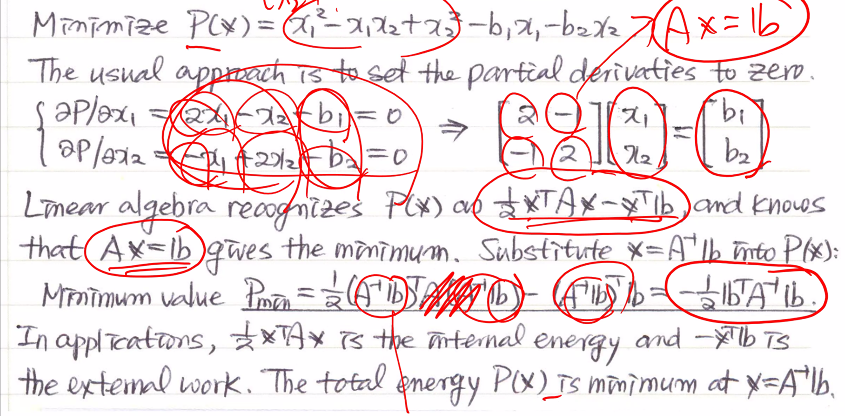 Minimize P(x) = x₁² - x₁x₂ + x₂² - b₁x₁ - b₂x₂ → Ax = b
The usual approach is to set the partial derivaties to zero.
{ ∂P/∂x₁ = 2x₁ - x₂ - b₁ = 0 ⇒ [2 -1] [x₁] = [b₁]
∂P/∂x₂ = -x₁ + 2x₂ - b₂ = 0 [-1 2] [x₂] [b₂]
Linear algebra recognizes P(x) as ½xᵀAx - xᵀb, and knows
that Ax = b gives the minimum. Substitute x = A⁻¹b into P(x):
Minimum value Pmin = ½(A⁻¹b)ᵀ A(A⁻¹b) - (A⁻¹b)ᵀb = -½bᵀA⁻¹b.
In applications, ½xᵀAx is the internal energy and -xᵀb is
the external work. The total energy P(x) is minimum at x = A⁻¹b.